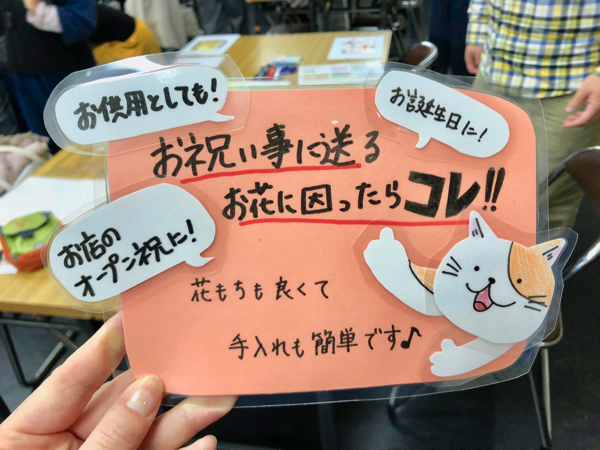 お供用としても!
お誕生日に!
お祝い事に送る
お花に困ったらコレ!!
お店の
オープン祝に!
花もちも良くて
手入れも簡単です♪